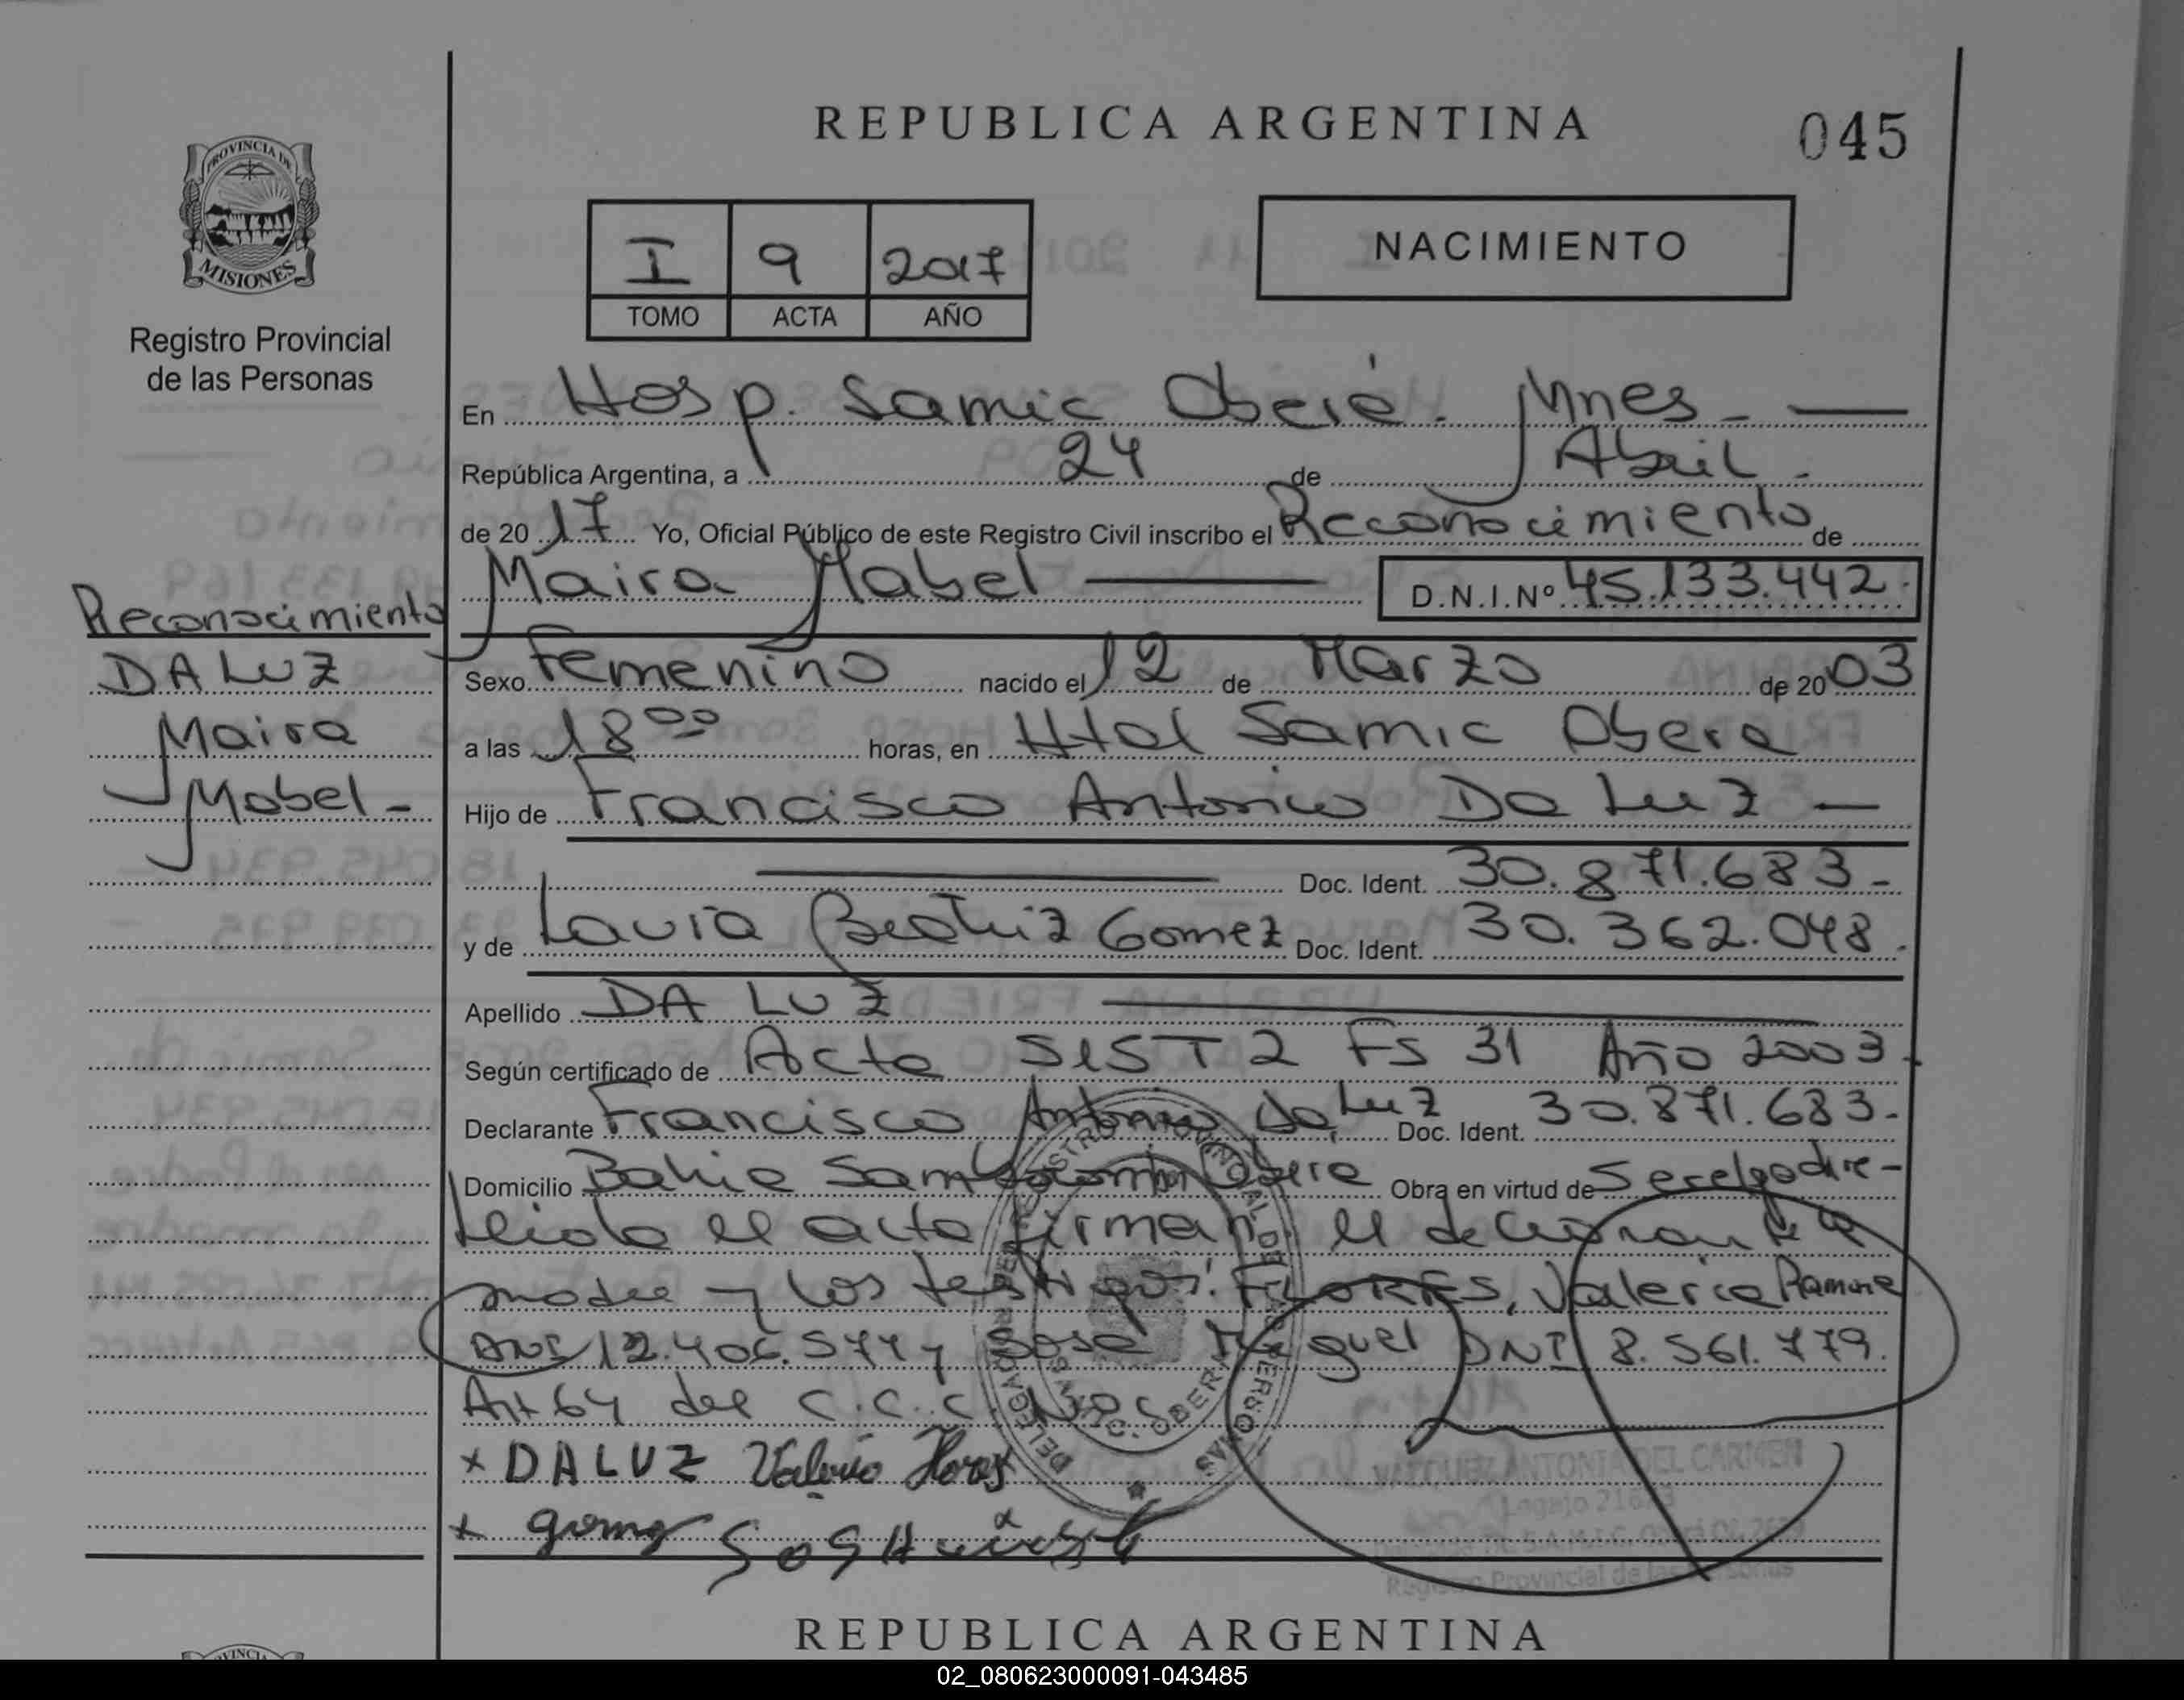 REPUBLICA ARGENTINA
045
PROVINCIA DE
MISIONES
Registro Provincial
de las Personas
I 9 2017
TOMO ACTA AÑO
NACIMIENTO
En Hosp. Samic Oberá. Mnes -
República Argentina, a 24 de Abril.
de 20 17 Yo, Oficial Público de este Registro Civil inscribo el Reconocimiento de
Maira Mabel D.N.I.Nº 45.133.442.
Reconocimiento
DA LUZ
Maira
Mabel -
Sexo Femenino nacido el 12 de Marzo de 20 03
a las 18 00 horas, en Htal Samic Obera
Hijo de Francisco Antonio Da Luz -
Doc. Ident. 30.871.683-
y de Laura Beatriz Gomez Doc. Ident. 30.362.048.
Apellido DA LUZ
Según certificado de Acta SIST 2 Fs 31 Año 2003.
Declarante Francisco Antonio Da Luz Doc. Ident. 30.871.683-
Domicilio Obra en virtud de
el acta firman el
madre y los testigos: FLORES, Valeria
DNI 12.406.577 y Sosa Miguel DNI 8.561.779.
Art 64 del C.C.C
x DALUZ Valerio Flores
x gomez
VAZQUEZ ANTONIA DEL CARMEN
Registro Provincial de las Personas
REPUBLICA ARGENTINA
02_080623000091-043485